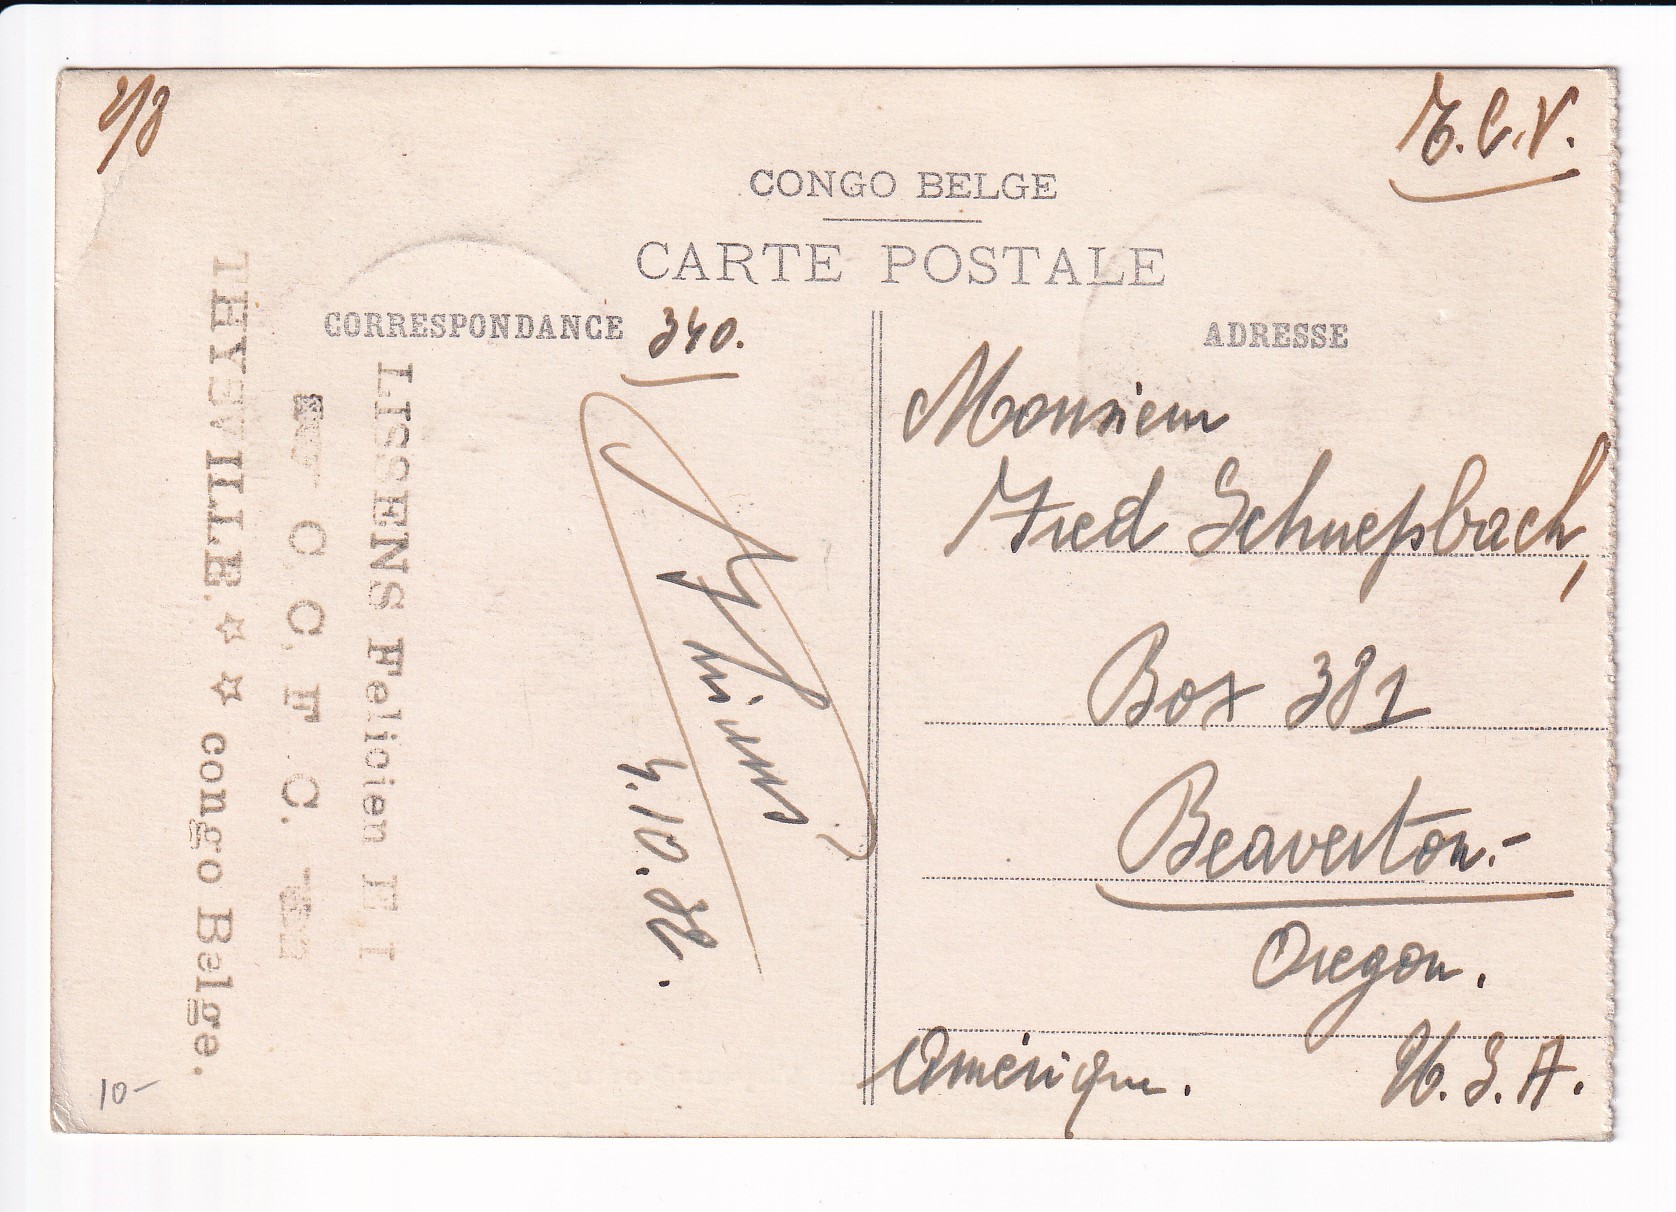 2/8
T.C.V.
CONGO BELGE
CARTE POSTALE
CORRESPONDANCE
340.
ADRESSE
Monsieur
Fred Schnepsbach,
Box 381
Beaverton.-
Oregon.
Amérique. U.S.A.
4.10.32.
LISSENS Felicien E I
C C. F C.
THYSVILLE. ☆ ☆ congo Belge.
10-